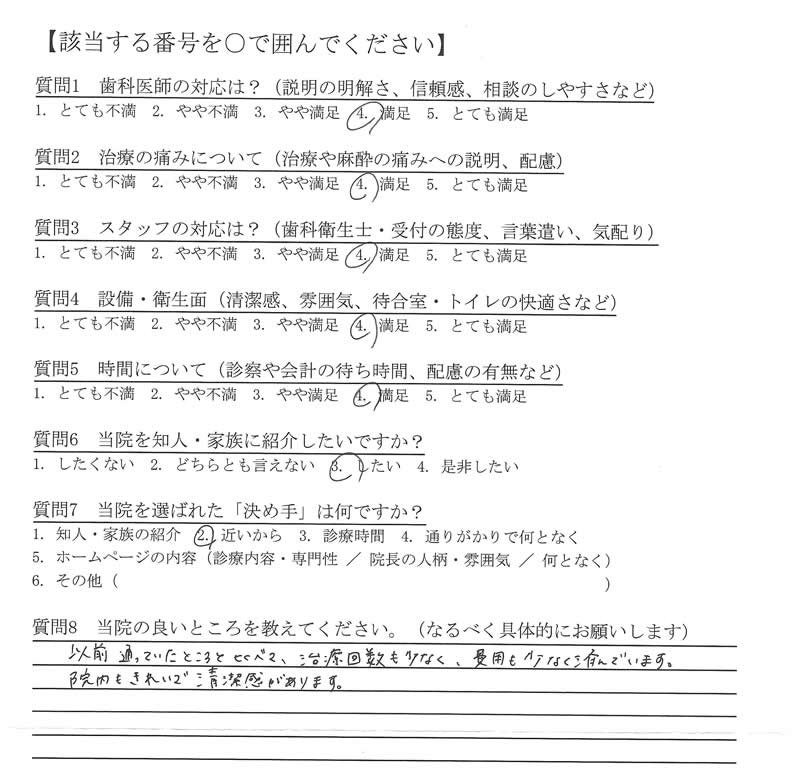 【該当する番号を○で囲んでください】
質問1 歯科医師の対応は？（説明の明解さ、信頼感、相談のしやすさなど）
1. とても不満 2. やや不満 3. やや満足 4. 満足 5. とても満足
質問2 治療の痛みについて（治療や麻酔の痛みへの説明、配慮）
1. とても不満 2. やや不満 3. やや満足 4. 満足 5. とても満足
質問3 スタッフの対応は？（歯科衛生士・受付の態度、言葉遣い、気配り）
1. とても不満 2. やや不満 3. やや満足 4. 満足 5. とても満足
質問4 設備・衛生面（清潔感、雰囲気、待合室・トイレの快適さなど）
1. とても不満 2. やや不満 3. やや満足 4. 満足 5. とても満足
質問5 時間について（診察や会計の待ち時間、配慮の有無など）
1. とても不満 2. やや不満 3. やや満足 4. 満足 5. とても満足
質問6 当院を知人・家族に紹介したいですか？
1. したくない 2. どちらとも言えない 3. したい 4. 是非したい
質問7 当院を選ばれた「決め手」は何ですか？
1. 知人・家族の紹介 2. 近いから 3. 診療時間 4. 通りがかりで何となく
5. ホームページの内容（診療内容・専門性 ／ 院長の人柄・雰囲気 ／ 何となく）
6. その他（ ）
質問8 当院の良いところを教えてください。（なるべく具体的にお願いします）
以前通っていたところと比べて、治療回数も少なく、費用も少なく済んでいます。
院内もきれいで清潔感があります。